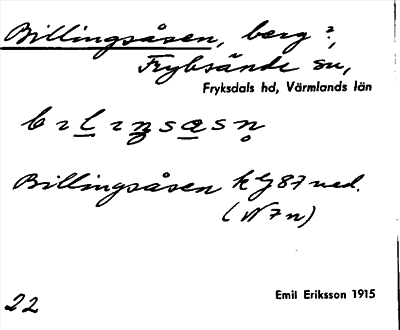 Billingsåsen, berg?,
Fryksände sn,
Fryksdals hd, Värmlands län
Billingsåsen k G 87 ned.
(N 7 n)
Emil Eriksson 1915
22